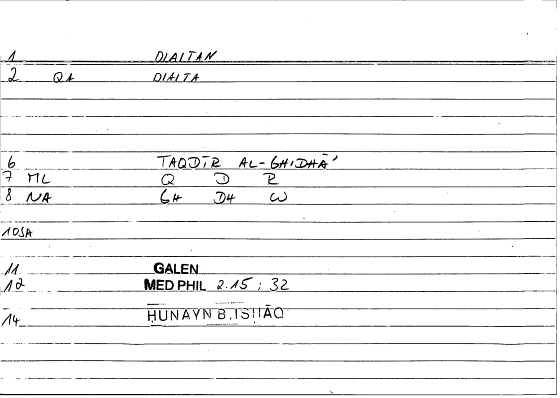 1 DIAITAN
2 QA DIAITA
6 TAQDĪR AL-GHIDHĀ'
7 ML Q D R
8 NA GH DH W
10 SA
11 GALEN
12 MED PHIL 2.15 ; 32
14 HUNAYN B. ISHĀQ